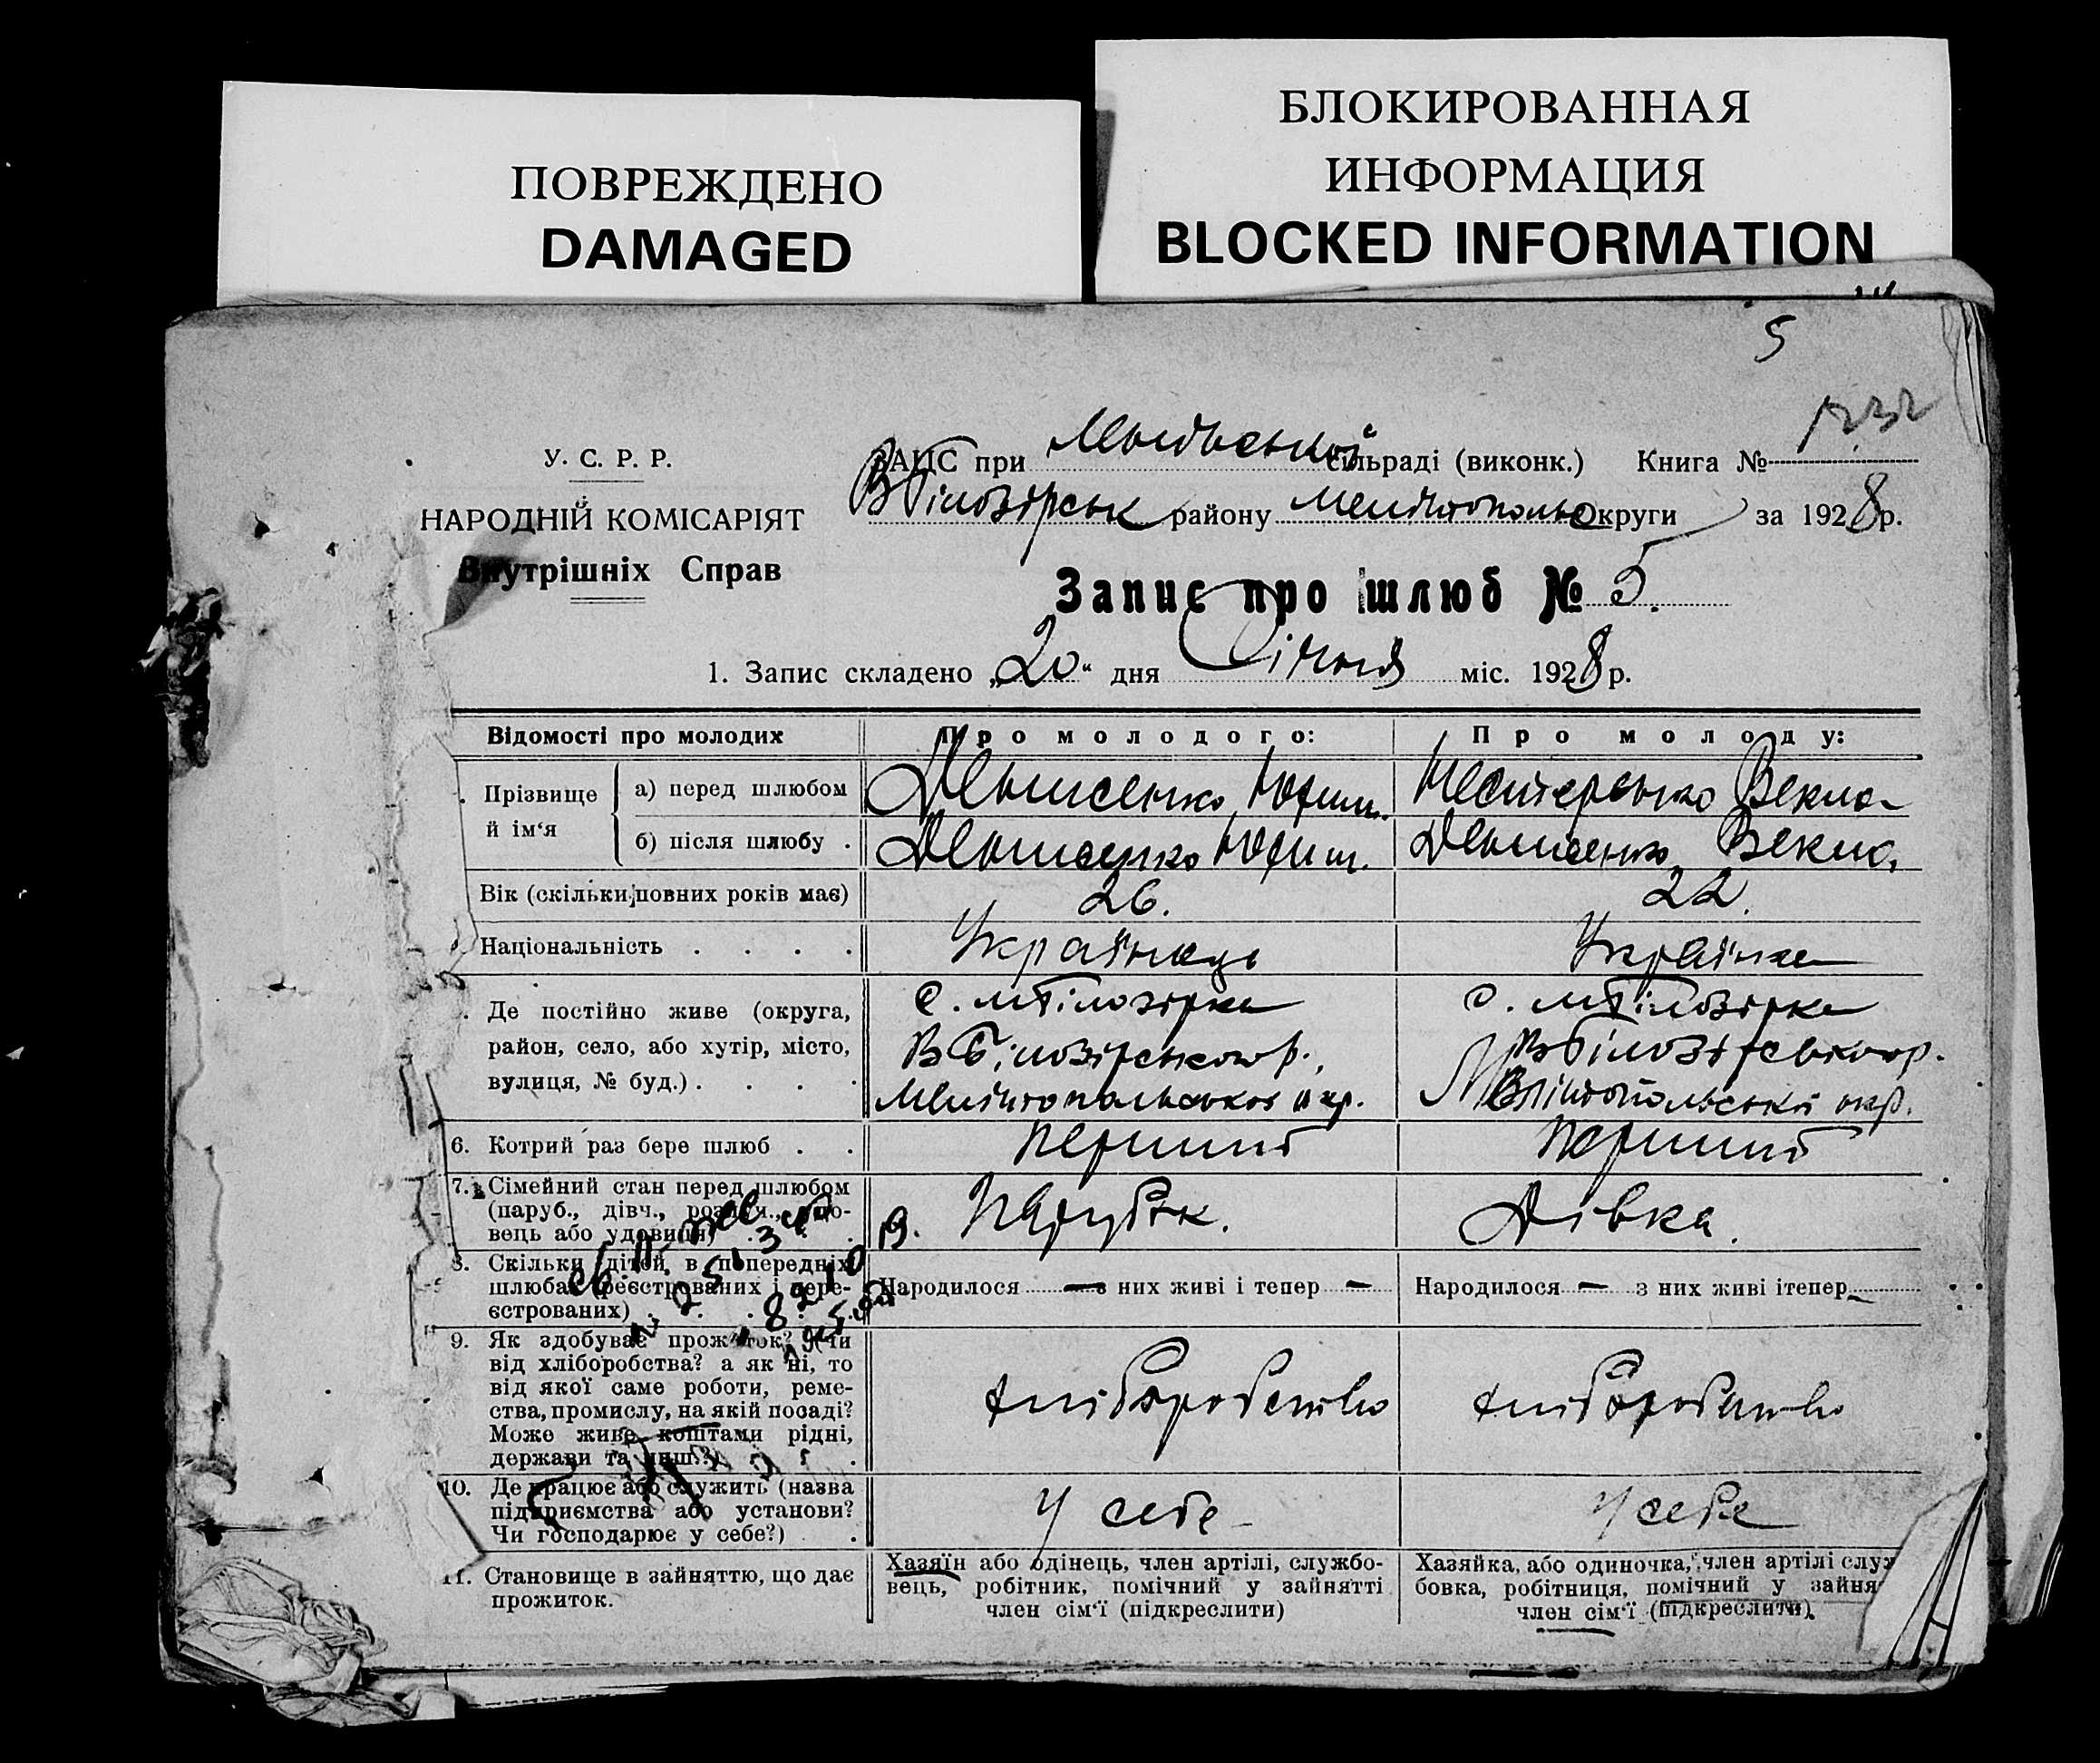 ПОВРЕЖДЕНО
DAMAGED
БЛОКИРОВАННАЯ
ИНФОРМАЦИЯ
BLOCKED INFORMATION
5
У. С. Р. Р.
НАРОДНІЙ КОМІСАРІЯТ
Внутрішніх Справ
ЗАЦС при сільраді (виконк.) Книга №
ВБілозірськ району Мелітополь округи за 1928 р.
Запис про шлюб № 5.
1. Запис складено „20“ дня Січня міс. 1928 р.
Відомості про молодих
Про молодого:
Про молоду:
Прізвище й ім‘я
а) перед шлюбом
Денисенко Юхим.
Нестеренко Векла
б) після шлюбу .
Денисенко Юхим.
Денисенко Векла,
Вік (скільки повних років має)
26.
22.
Національність . . . .
Українець
Українка
Де постійно живе (округа,
район, село, або хутір, місто,
вулиця, № буд.) . . . .
с. МБілозірка
ВБілозірського р.,
Мелітопольської окр.
с. МБілозірка
ВБілозірського р.
Мелітопольської окр.
6. Котрий раз бере шлюб . .
перший
перший
7. Сімейний стан перед шлюбом
(паруб., дівч., розлуч., удо-
вець або удовиця)
Парубок.
Дівка.
8. Скільки дітей в попередніх
шлюбах (реєстрованих і нере-
єстрованих) .
Народилося — з них живі і тепер —
Народилося — з них живі ітепер —
9. Як здобуває прожиток? (Чи
від хліборобства? а як ні, то
від якої саме роботи, реме-
ства, промислу, на якій посаді?
Може живе коштами рідні,
держави та инш.?)
хліборобство
хліборобство
10. Де працює або служить (назва
підприємства або установи?
Чи господарює у себе?) .
у себе
у себе
11. Становище в зайняттю, що дає
прожиток.
Хазяїн або одінець, член артілі, службо-
вець, робітник, помічний у зайнятті
член сім‘ї (підкреслити)
Хазяйка, або одиночка, член артілі служ
бовка, робітниця, помічний у зайня
член сім‘ї (підкреслити).